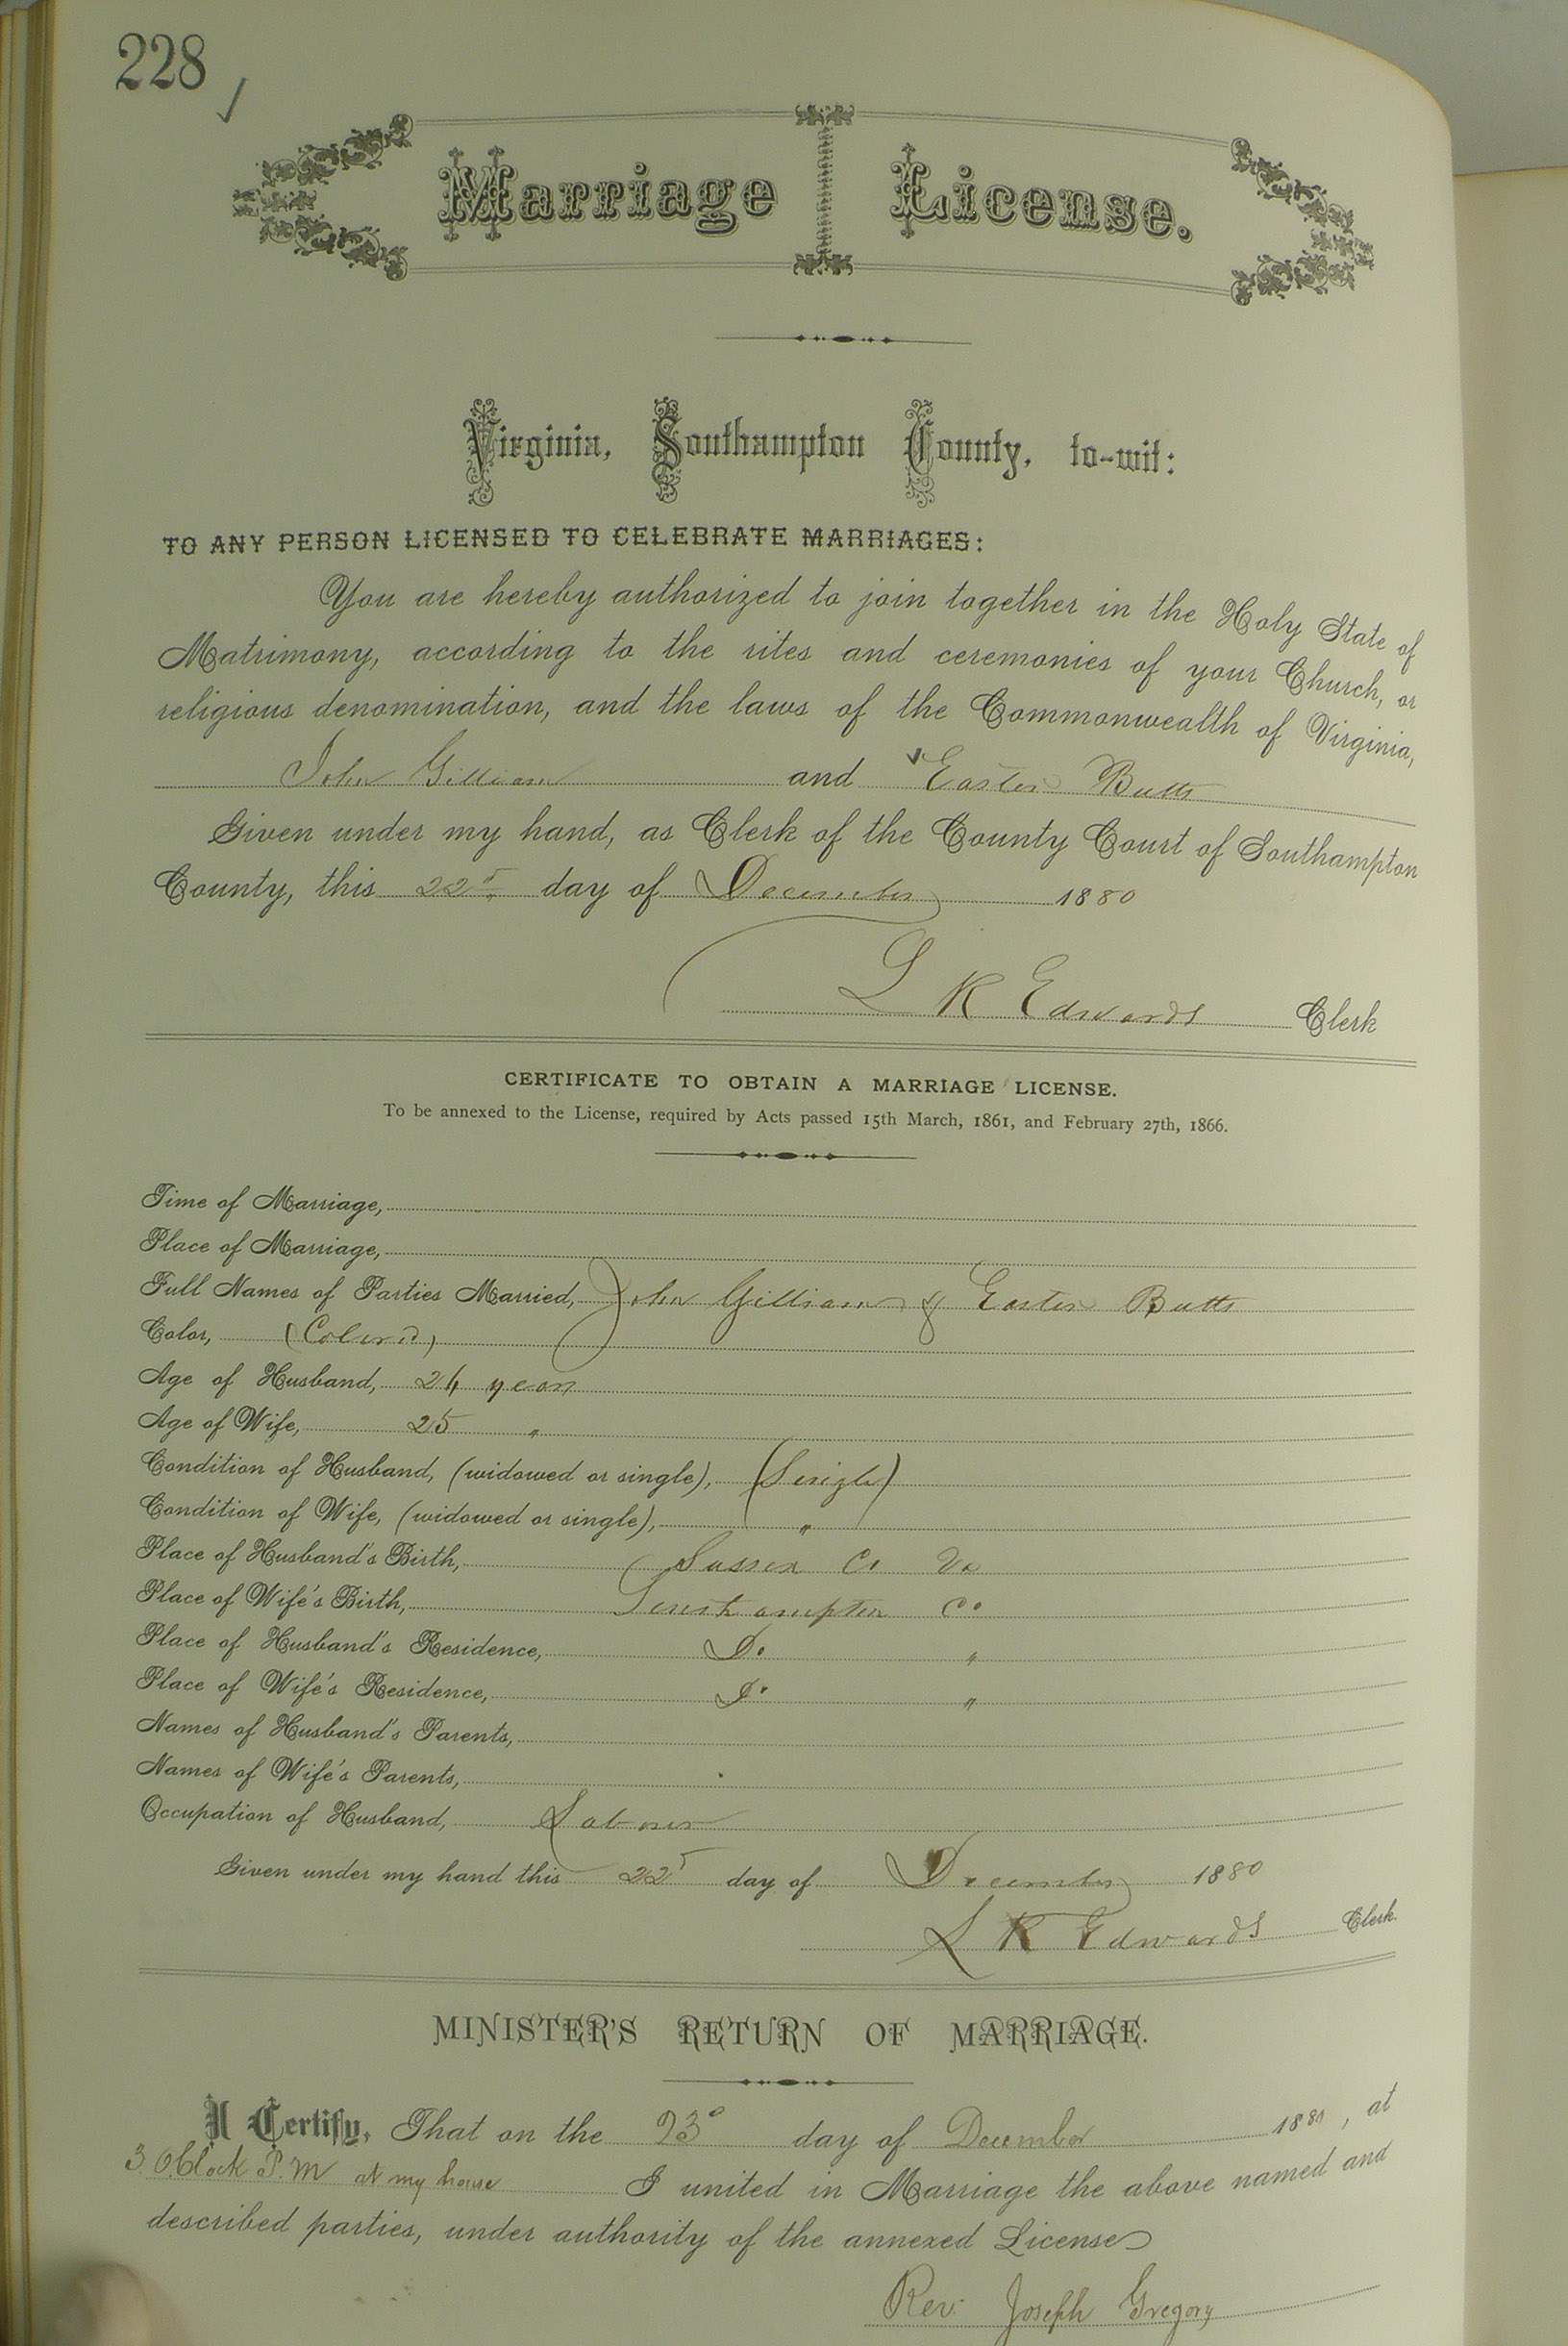 228
Marriage License.
Virginia, Southampton County, to-wit:
TO ANY PERSON LICENSED TO CELEBRATE MARRIAGES:
You are hereby authorized to join together in the Holy State of
Matrimony, according to the rites and ceremonies of your Church, or
religious denomination, and the laws of the Commonwealth of Virginia,
John Gilliam and Easter Butts
Given under my hand, as Clerk of the County Court of Southampton
County, this 22d day of December 1880
L K Edwards Clerk
CERTIFICATE TO OBTAIN A MARRIAGE LICENSE.
To be annexed to the License, required by Acts passed 15th March, 1861, and February 27th, 1866.
Time of Marriage,
Place of Marriage,
Full Names of Parties Married, John Gilliam & Easter Butts
Color, (Colored)
Age of Husband, 24 years
Age of Wife, 25 "
Condition of Husband, (widowed or single), (Single)
Condition of Wife, (widowed or single), "
Place of Husband's Birth, Sussex Co Va
Place of Wife's Birth, Southampton Co
Place of Husband's Residence, Do "
Place of Wife's Residence, Do "
Names of Husband's Parents,
Names of Wife's Parents,
Occupation of Husband, Laborer
Given under my hand this 22d day of December 1880
L K Edwards Clerk.
MINISTER'S RETURN OF MARRIAGE.
I Certify, That on the 23d day of December 1880, at
3 OClock P.M at my house I united in Marriage the above named and
described parties, under authority of the annexed License
Rev. Joseph Gregory